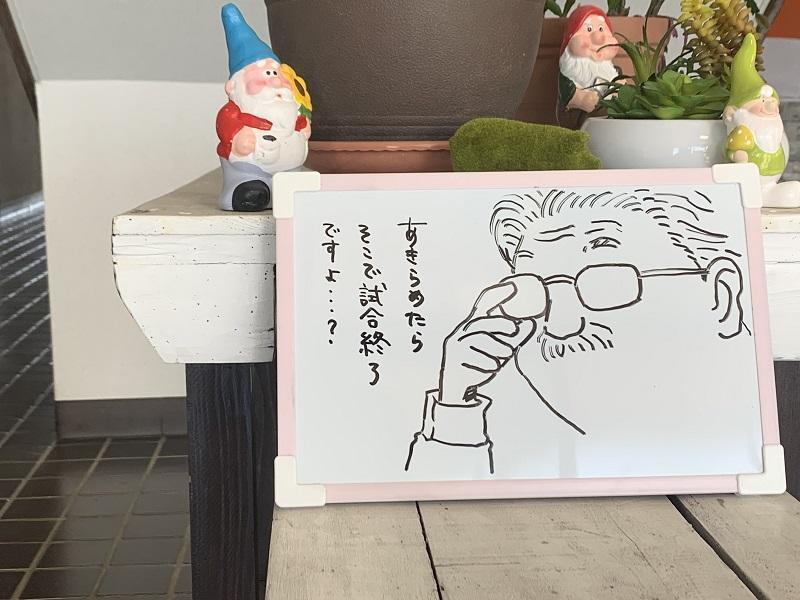 あきらめたら
そこで試合終了
ですよ・・・？